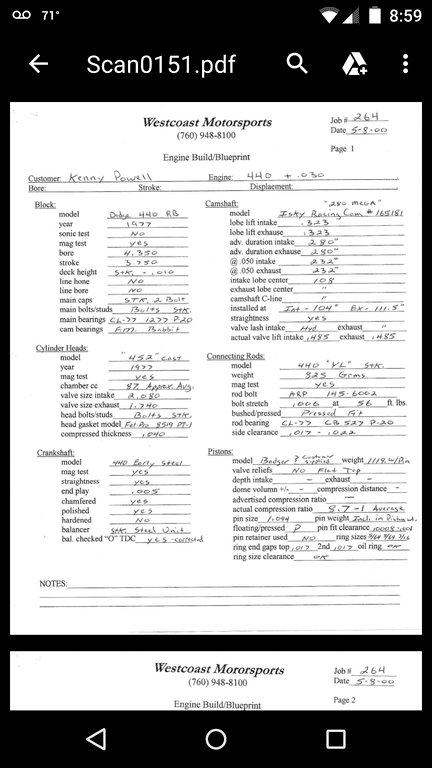 71° 8:59
Scan0151.pdf
Westcoast Motorsports Job# 264
(760) 948-8100 Date 5-8-00
Page 1
Engine Build/Blueprint
Customer: Kenny Powell Engine: 440 + .030
Bore: Stroke: Displacement:
Block:
model Dodge 440 RB
year 1977
sonic test NO
mag test yes
bore 4.350
stroke 3.750
deck height STK. - .010
line hone NO
line bore NO
main caps STK. 2 Bolt
main bolts/studs Bolts STK.
main bearings CL-77 1277 P.20
cam bearings F.M. Babbit
Cylinder Heads:
model "452" Cast
year 1977
mag test yes
chamber cc 87. Approx. Avg.
valve size intake 2.080
valve size exhaust 1.740
head bolts/studs Bolts STK.
head gasket model Fel-Pro 8519 PT-1
compressed thickness .040
Crankshaft:
model 440 Early Steel
mag test yes
straightness yes
end play .005
chamfered yes
polished yes
hardened NO
balancer STK. Steel Unit
bal. checked "O" TDC yes - corrected
Camshaft: "280 MEGA"
model Isky Racing Cam # 165181
lobe lift intake .323
lobe lift exhause .323
adv. duration intake 280°
adv. duration exhause 280°
@ .050 intake 232°
@ .050 exhaust 232°
intake lobe center 108
exhaust lobe center "
camshaft C-line "
installed at Int - 104° Ex - 111.5°
straightness yes
valve lash intake Hyd. exhaust "
actual valve lift intake .485 exhaust .485
Connecting Rods:
model 440 "YL" STK.
weight 825 Grms
mag test yes
rod bolt ARP 145-6002
bolt stretch .006 at 56 ft. lbs.
bushed/pressed Pressed Fit
rod bearing CL-77 CB 527 P-20
side clearance .017 - .022
Pistons:
model Badger ? customer supplied weight 1119. w/Pin
valve reliefs NO Flat Top
depth intake - exhaust -
dome volume +/- - compression distance -
advertised compression ratio -
actual compression ratio 8.7-1 Average
pin size 1.094 pin weight Incl. in
floating/pressed P pin fit clearance
pin retainer used NO ring sizes 5/64 5/64 3/16
ring end gaps top .017 2nd .017 oil ring OK
ring size clearance OK
NOTES:
Westcoast Motorsports Job# 264
(760) 948-8100 Date 5-8-00
Engine Build/Blueprint Page 2